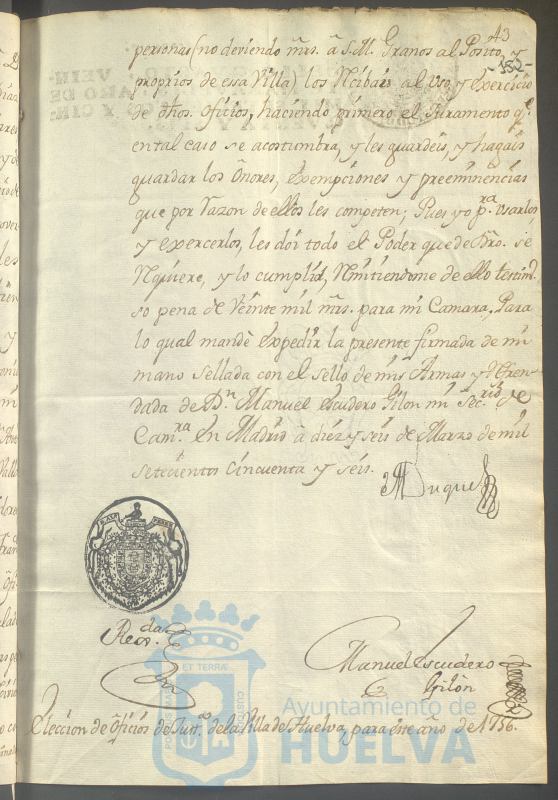 43
-152-
personas (no deviendo mrs. â S.M. Granos al Posito, y
proprios de essa Villa) los Rcibais al Uso, y exercicio
de dhos. oficios, haciendo primero el Juramento qe.
en tal caso se acostumbra, y les guardeis, y hagais
guardar los Onores, exempciones y preeminencias
que por razon de ellos les competen; Pues yo pra. usarlos
y exercerlos, les doi todo el Poder que de Dro. se
Rquiere, y lo cumplid, Rmitiendome de ello testimo.
so pena de Veinte mil mrs. para mi Camara, Para
lo qual mandè expedir la presente firmada de mi
mano sellada con el sello de mis Armas y Rfren-
dada de Dn. Manuel escudero Gilon mi Secrio. de
Camra. en Madrid â diez y seis de Marzo de mil
setecientos cincuenta y seis.
El Duque
Regda.
Manuel Escudero
Gilòn
Eleccion de oficios de Justa. de la Villa de Huelva, para este año de 1756.
ET TERRAE
Ayuntamiento de
HUELVA